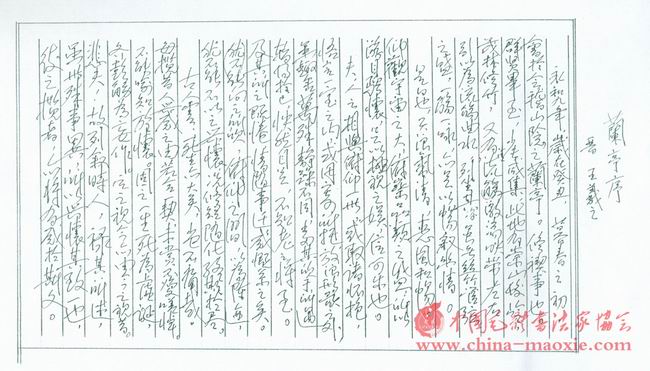 蘭亭序
晋 王羲之
永和九年，歲在癸丑，暮春之初
會於會稽山陰之蘭亭。修禊事也
群賢畢至，少長咸集。此地有崇山峻嶺
茂林修竹，又有清流激湍，映帶左右
引以為流觴曲水，列坐其次。雖無絲竹管弦
之盛，一觴一詠，亦足以暢敘幽情。
是日也，天朗氣清，惠風和暢
仰觀宇宙之大，俯察品類之盛，所以
游目騁懷，足以極視聽之娛，信可樂也。
夫人之相與，俯仰一世，或取諸懷抱，
悟言一室之內，或因寄所託，放浪形骸之外，
雖趣舍萬殊，靜躁不同，當其欣於所遇
暫得於己，快然自足，不知老之將至。
及其所之既倦，情隨事遷，感慨系之矣。
向之所欣，俯仰之間，以為陳迹
猶不能不以之興懷，況修短隨化，終期於盡。
古人云，死生亦大矣，豈不痛哉。
每覽昔人興感之由，若合一契，未嘗不臨文嗟悼，
不能喻之於懷。固知一死生為虛誕，
齊彭殤為妄作。後之視今，亦猶今之視昔。
悲夫，故列敘時人，錄其所述，
雖世殊事異，所以興懷，其致一也，
後之覽者，亦將有感於斯文。
中国毛协书法家协会
www.china-maoxie.com